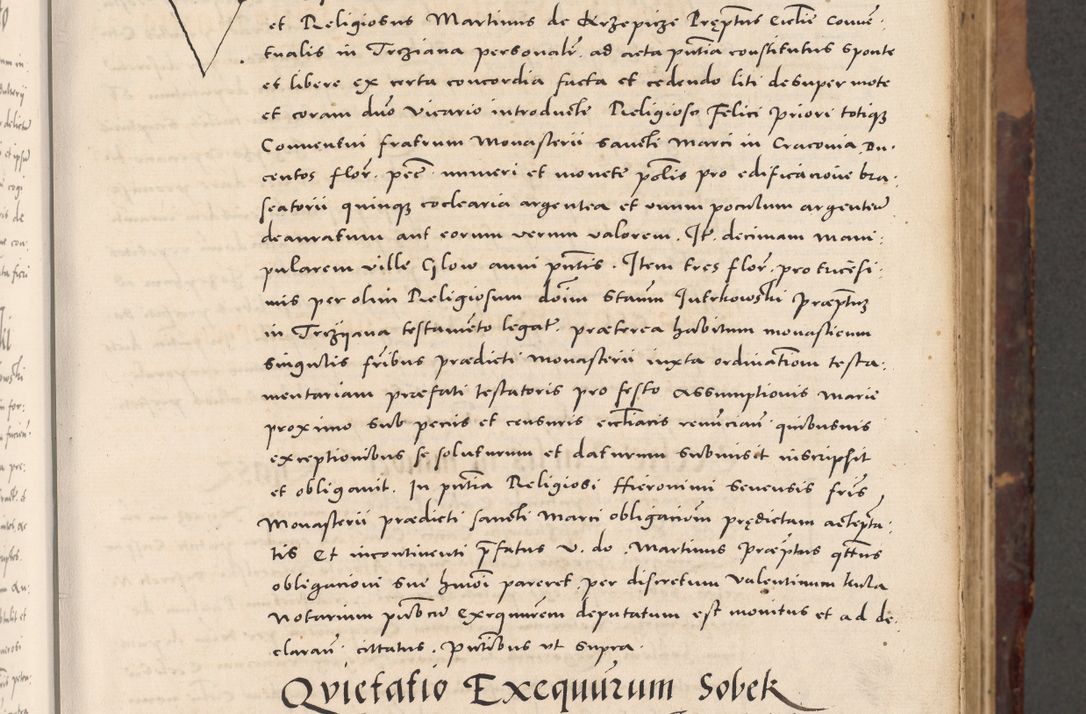 et Religiosus Martinus de Krzepicze Pręptus Ecclie Conven:
tualis in Trcziana personalr. ad acta pntia constitutus sponte
et libere ex certa concordia facta et cedendo liti desuper mote
et coram dno Vicario introducte Religioso Felici Priori totiqz
Conventui fratrum Monasterii Sancti Marci in Cracovia Du:
centos flor. pecc numeri et monete polis pro edificacione bra:
seatorii quinqz coclearia argentea et unum poculum argenteu
deauratum aut eorum verum valorem. It. decimam mani:
pularem ville Glow anni pntis. Item tres flor. pro tricesi:
mis per olim Religiosum doim Staum Jutrkowski Præptuz
in Trczijana testamento legat. præterea habitum monasticum
singulis fribus prædicti Monasterii iuxta ordinationem testa:
mentariam præfati testatoris pro festo Assumptionis Marie
proximo sub penis et censuris eccliacis renuncian quibusuis
exceptionibus se soluturum et daturum submisit inscripsit
et obligavit. In pntia Religiosi Hieronimi Senensis fris
Monasterii prædicti sancti Marci obligacionem prędictam accepta:
tis Et incontinenti pfatus v. do. Martinus Præptus qttus
obligacioni sue hmoi pareret per discretum Valentinum
Notarium publicu Exequutem deputatum est monitus et ad de:
claran cittatus. Pntibus ut supra.
Qvietatio Exequurum Sobek